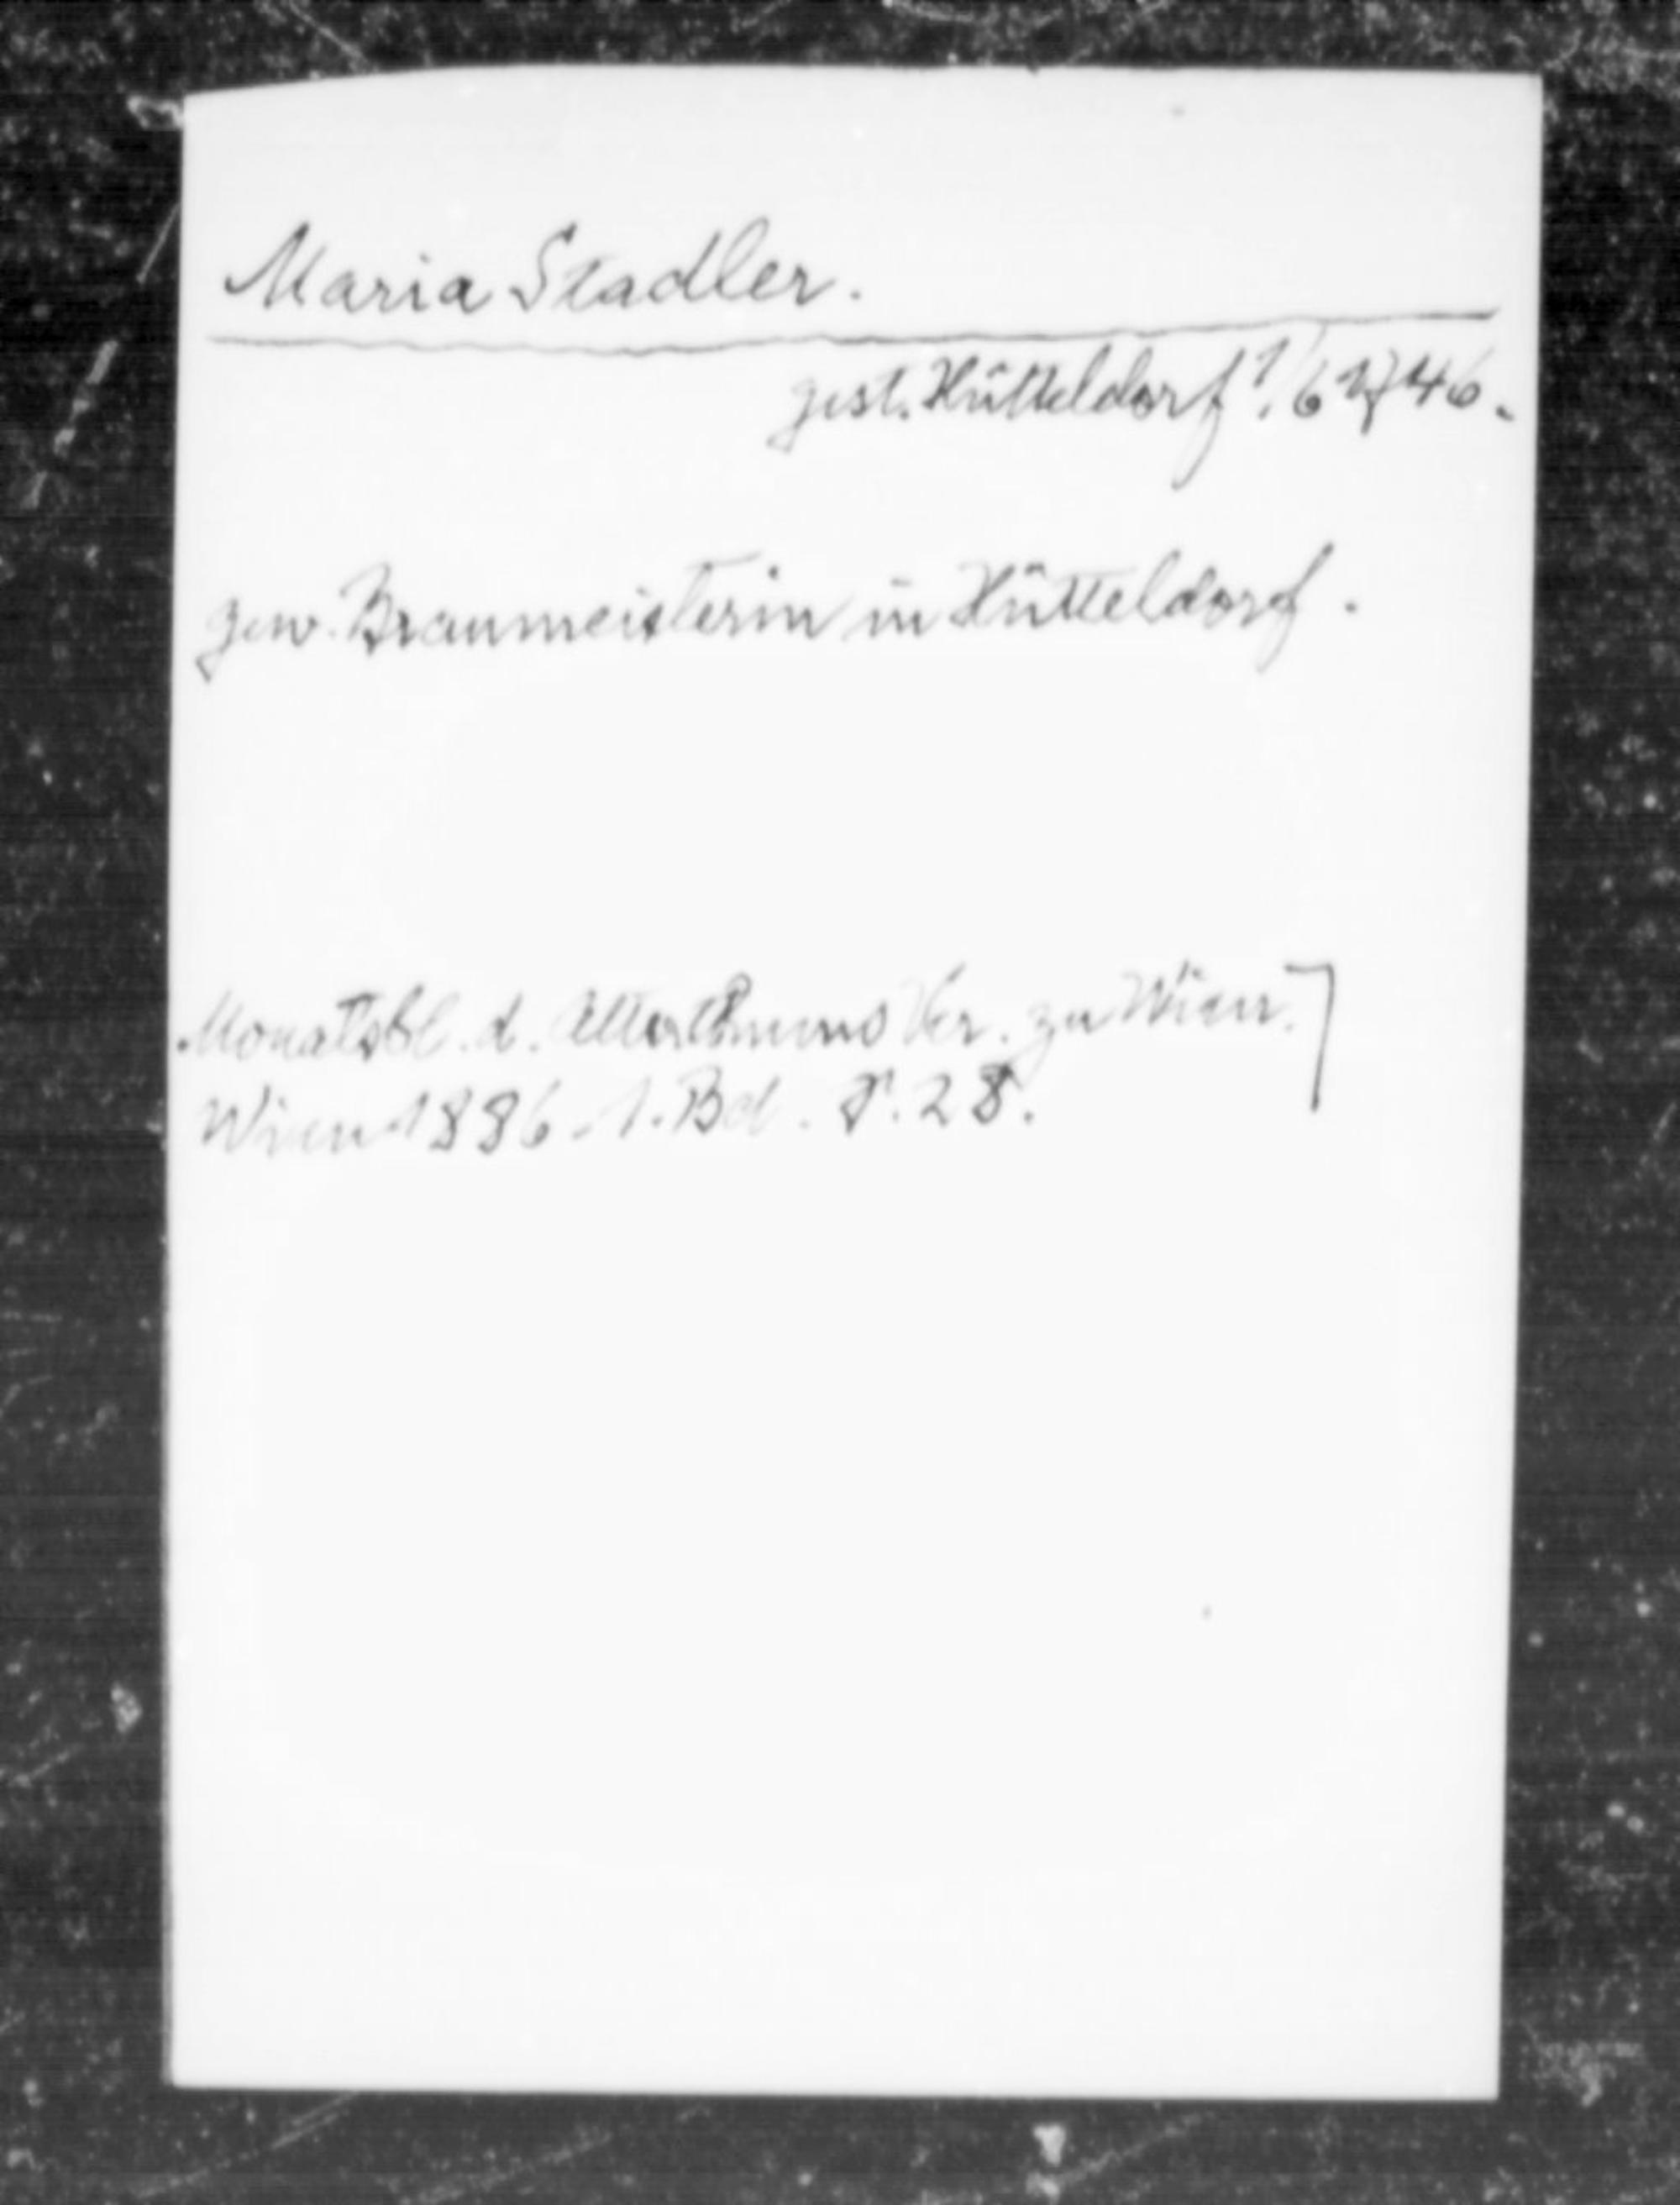 Maria Stadler.
gest. Hütteldorf 1/6 1746.
gew. Braumeisterin in Hütteldorf.
Monatsbl. d. Alterthums Ver. zu Wien.]
Wien 1886. 1. Bd. S. 28.